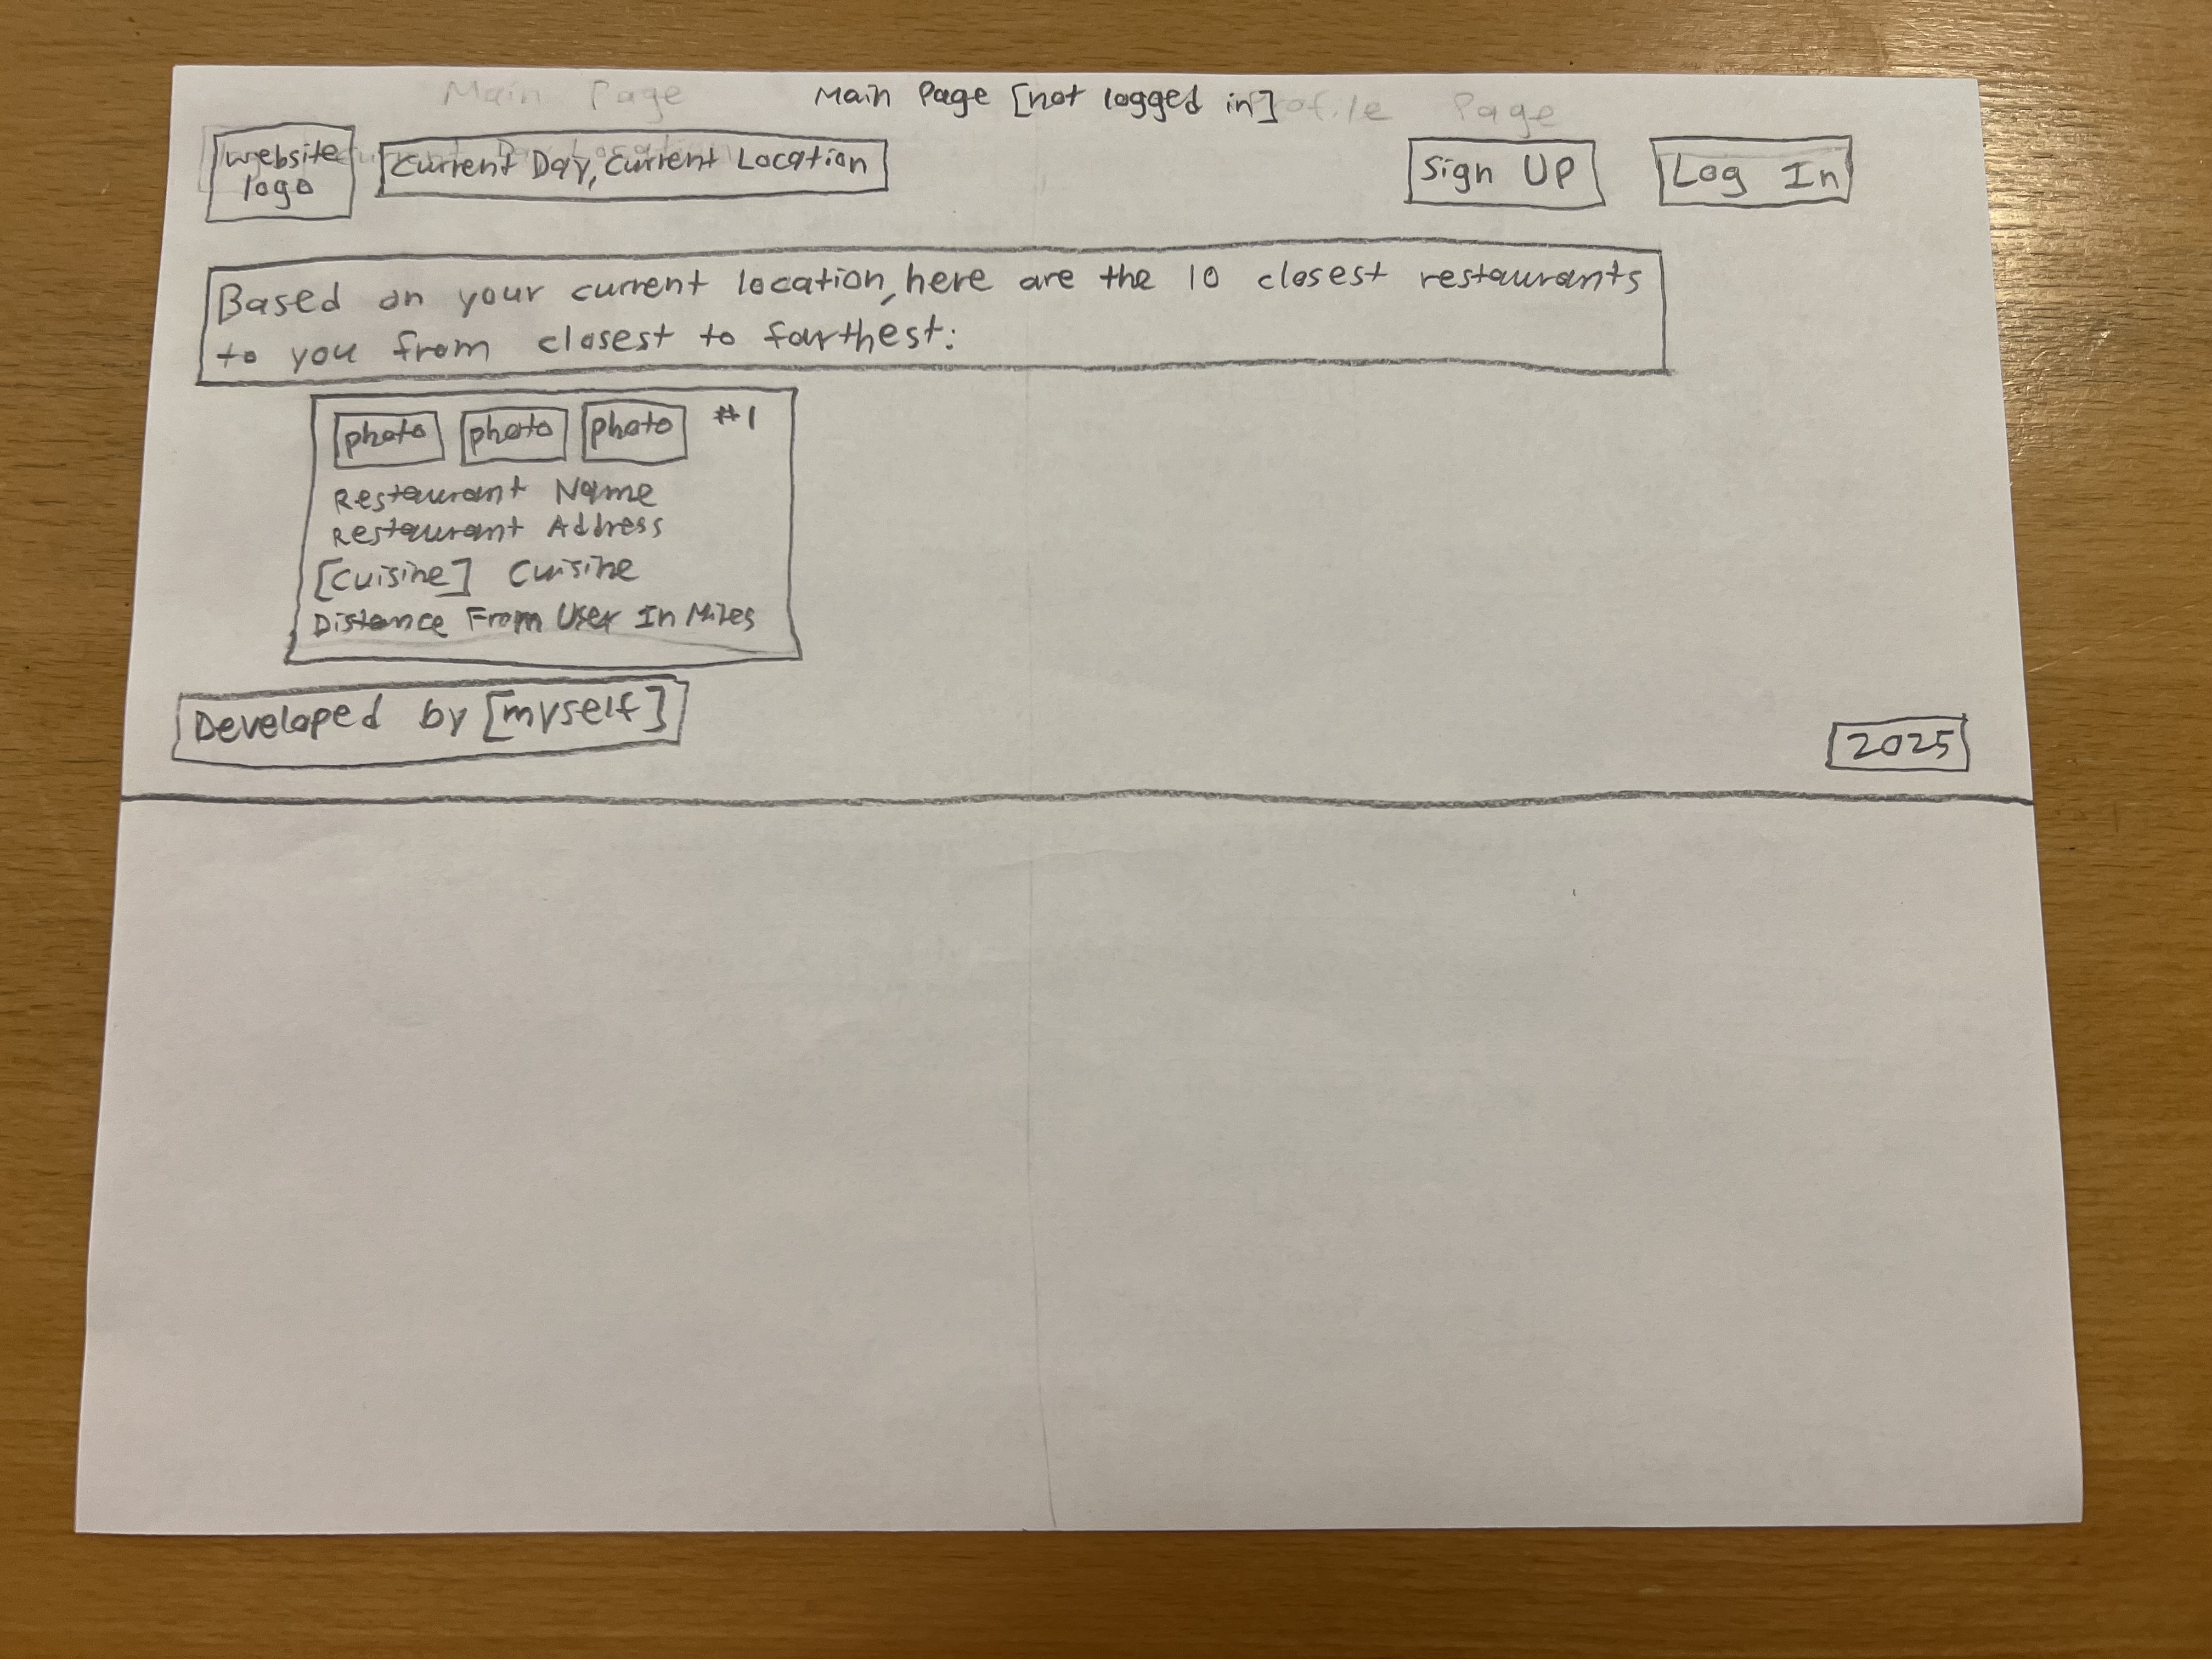 Main Page
Main Page [not logged in]
Page
website
logo
Current Day, Current Location
Sign UP
Log In
Based on your current location, here are the 10 closest restaurants
to you from closest to farthest:
photo
photo
photo
#1
Restaurant Name
Restaurant Address
[Cuisine] Cuisine
Distance From User In Miles
Developed by [myself]
2025